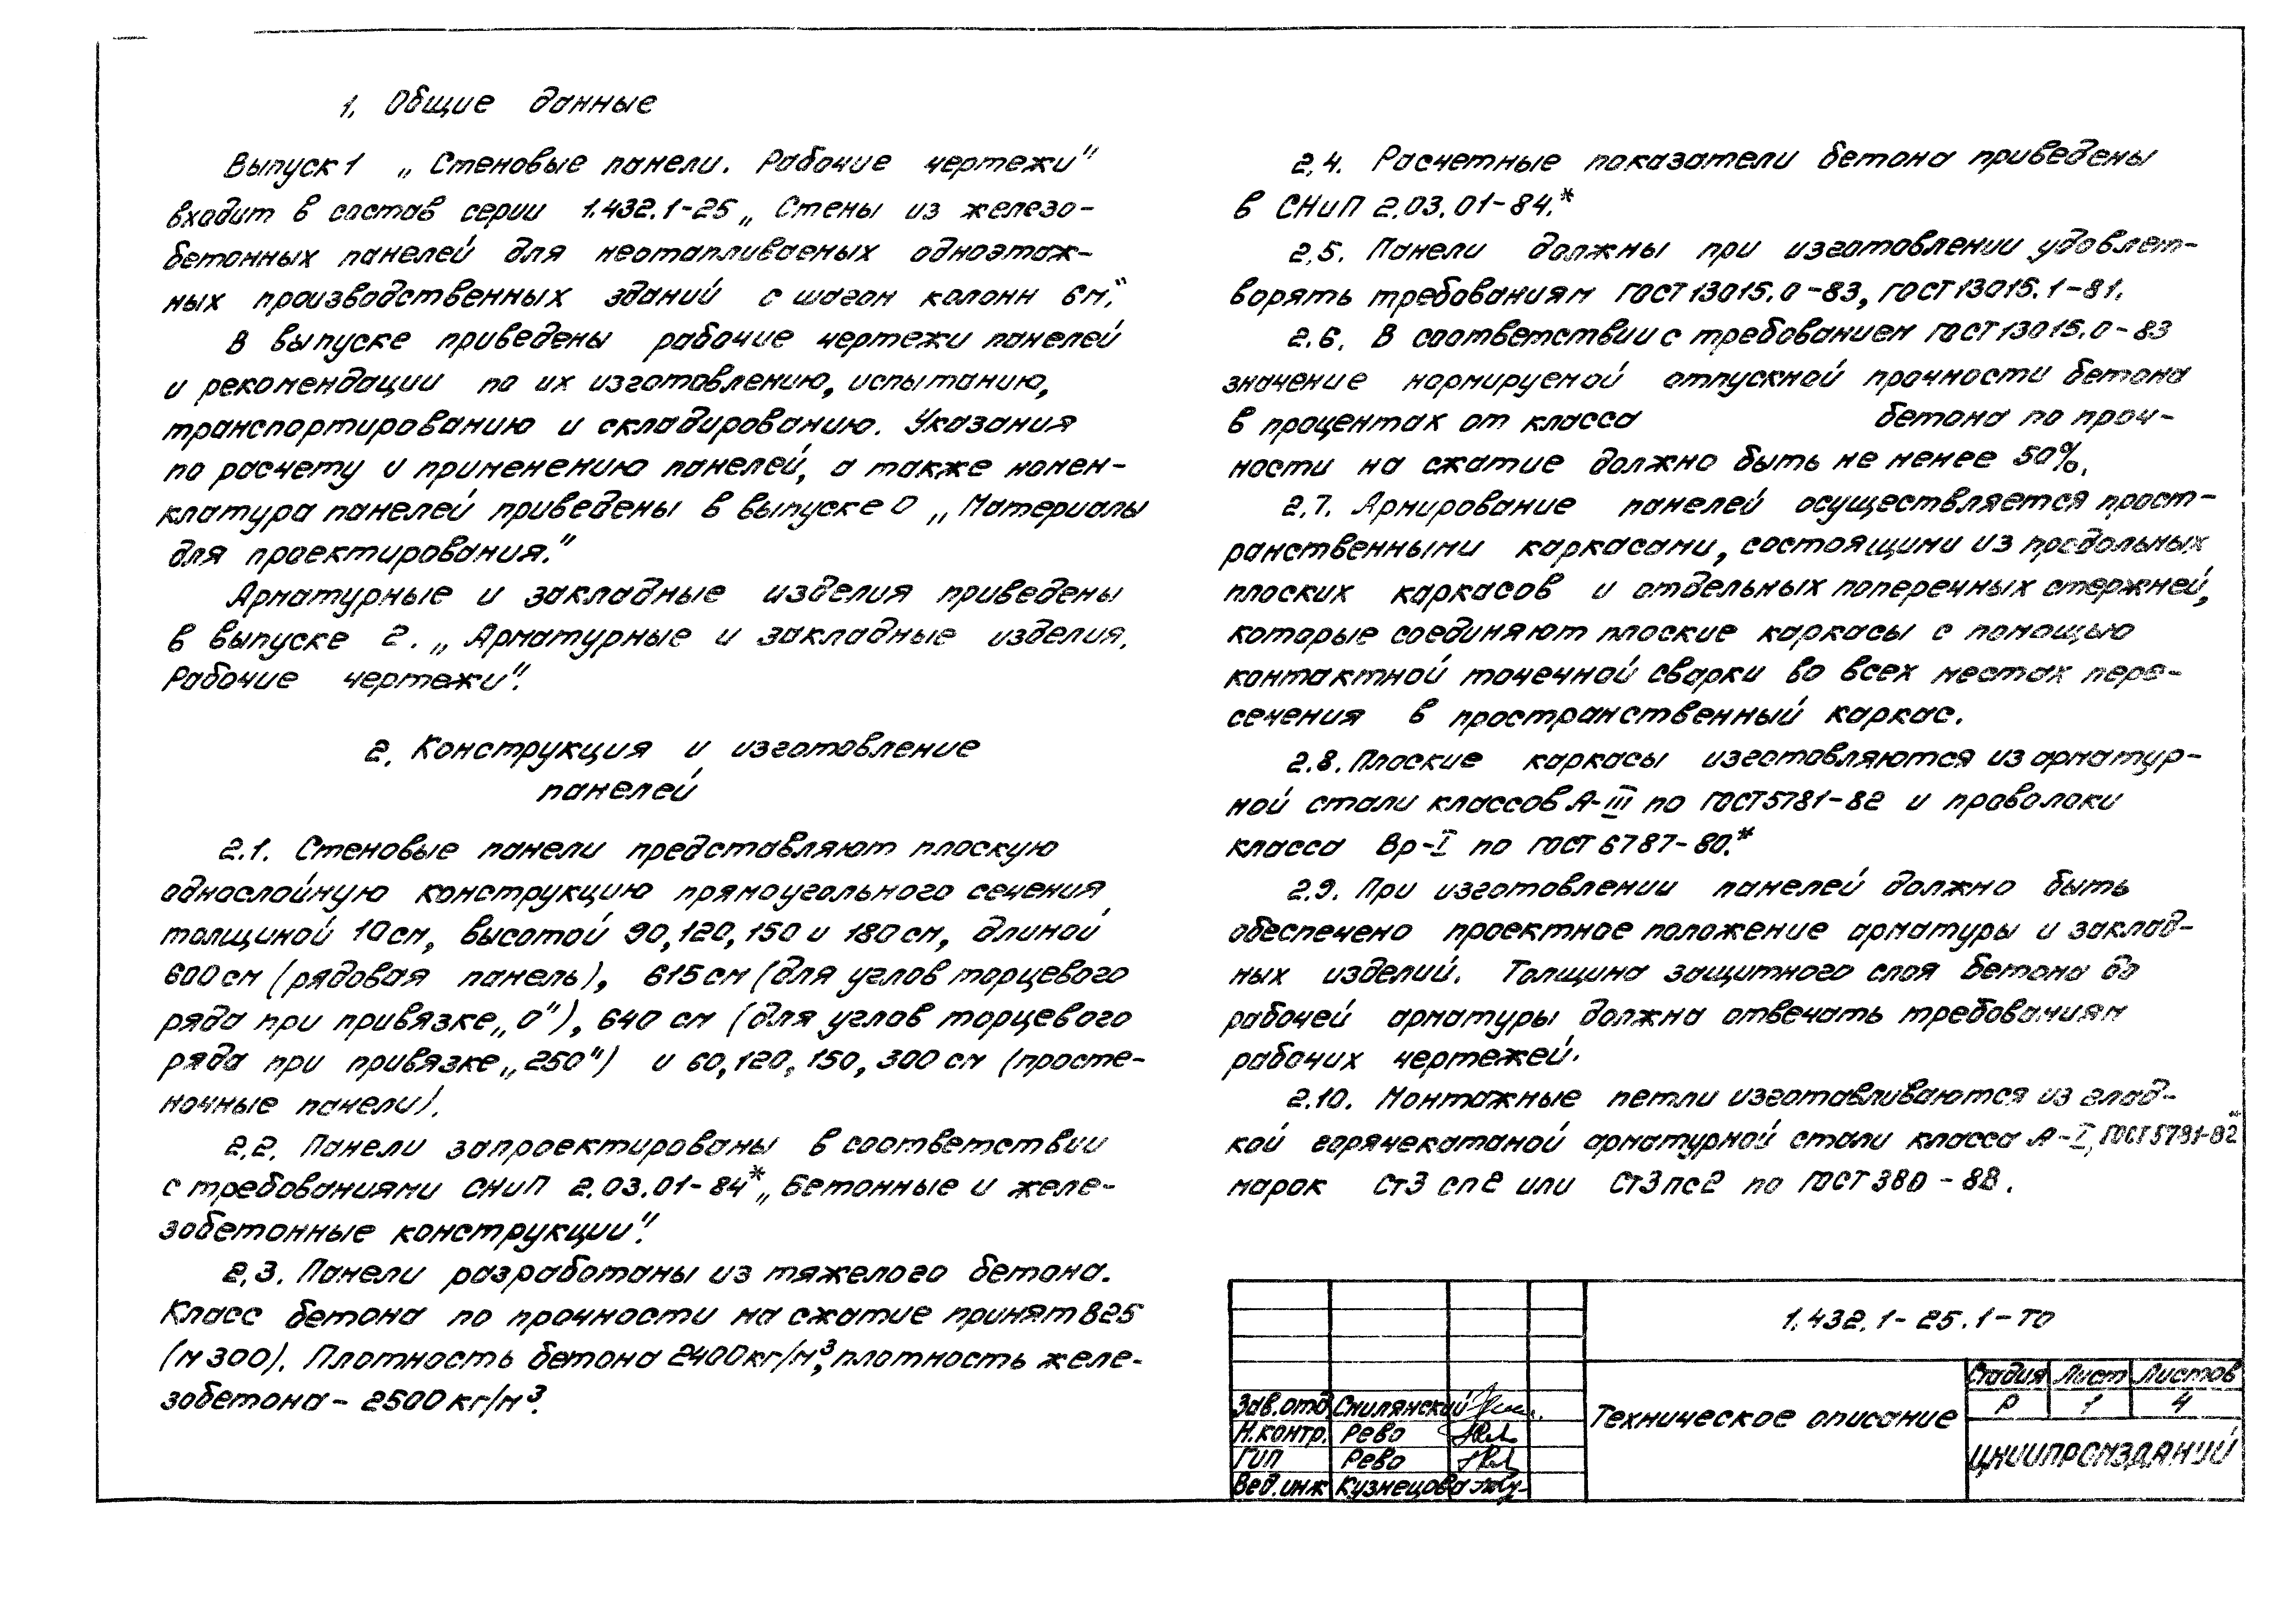 1. Общие данные
Выпуск 1 „Стеновые панели. Рабочие чертежи"
входит в состав серии 1.432.1-25 „Стены из железо-
бетонных панелей для неотапливаемых одноэтаж-
ных производственных зданий с шагом колонн 6м."
В выпуске приведены рабочие чертежи панелей
и рекомендации по их изготовлению, испытанию,
транспортированию и складированию. Указания
по расчету и применению панелей, а также номен-
клатура панелей приведены в выпуске 0 „Материалы
для проектирования."
Арматурные и закладные изделия приведены
в выпуске 2. „Арматурные и закладные изделия.
Рабочие чертежи".
2. Конструкция и изготовление
панелей
2.1. Стеновые панели представляют плоскую
однослойную конструкцию прямоугольного сечения
толщиной 10см, высотой 90,120,150 и 180см, длиной
600см (рядовая панель), 615см (для углов торцевого
ряда при привязке „0"), 640 см (для углов торцевого
ряда при привязке „250") и 60,120,150,300см (просте-
ночные панели).
2.2. Панели запроектированы в соответствии
с требованиями СНиП 2.03.01-84* „Бетонные и желе-
зобетонные конструкции".
2.3. Панели разработаны из тяжелого бетона.
Класс бетона по прочности на сжатие принят В25
(М300). Плотность бетона 2400кг/м³, плотность желе-
зобетона - 2500кг/м³.
2.4. Расчетные показатели бетона приведены
в СНиП 2.03.01-84.*
2.5. Панели должны при изготовлении удовлет-
ворять требованиям ГОСТ 13015.0-83, ГОСТ 13015.1-81.
2.6. В соответствии с требованием ГОСТ 13015.0-83
значение нормируемой отпускной прочности бетона
в процентах от класса бетона по проч-
ности на сжатие должно быть не менее 50%.
2.7. Армирование панелей осуществляется прост-
ранственными каркасами, состоящими из продольных
плоских каркасов и отдельных поперечных стержней,
которые соединяют плоские каркасы с помощью
контактной точечной сварки во всех местах пере-
сечения в пространственный каркас.
2.8. Плоские каркасы изготовляются из арматур-
ной стали классов А-III по ГОСТ 5781-82 и проволоки
класса Вр-I по ГОСТ 6787-80.*
2.9. При изготовлении панелей должно быть
обеспечено проектное положение арматуры и заклад-
ных изделий. Толщина защитного слоя бетона до
рабочей арматуры должна отвечать требованиям
рабочих чертежей.
2.10. Монтажные петли изготавливаются из глад-
кой горячекатаной арматурной стали класса А-I, ГОСТ 5781-82*
марок Ст3 сп2 или Ст3пс2 по ГОСТ 380-88.
1.432.1-25.1-ТО
Зав.отд Смилянский
Н.контр. Рево
ГИП Рево
Вед.инж Кузнецова
Техническое описание
Стадия Лист Листов
Р 1 4
ЦНИИПРОМЗДАНИЙ